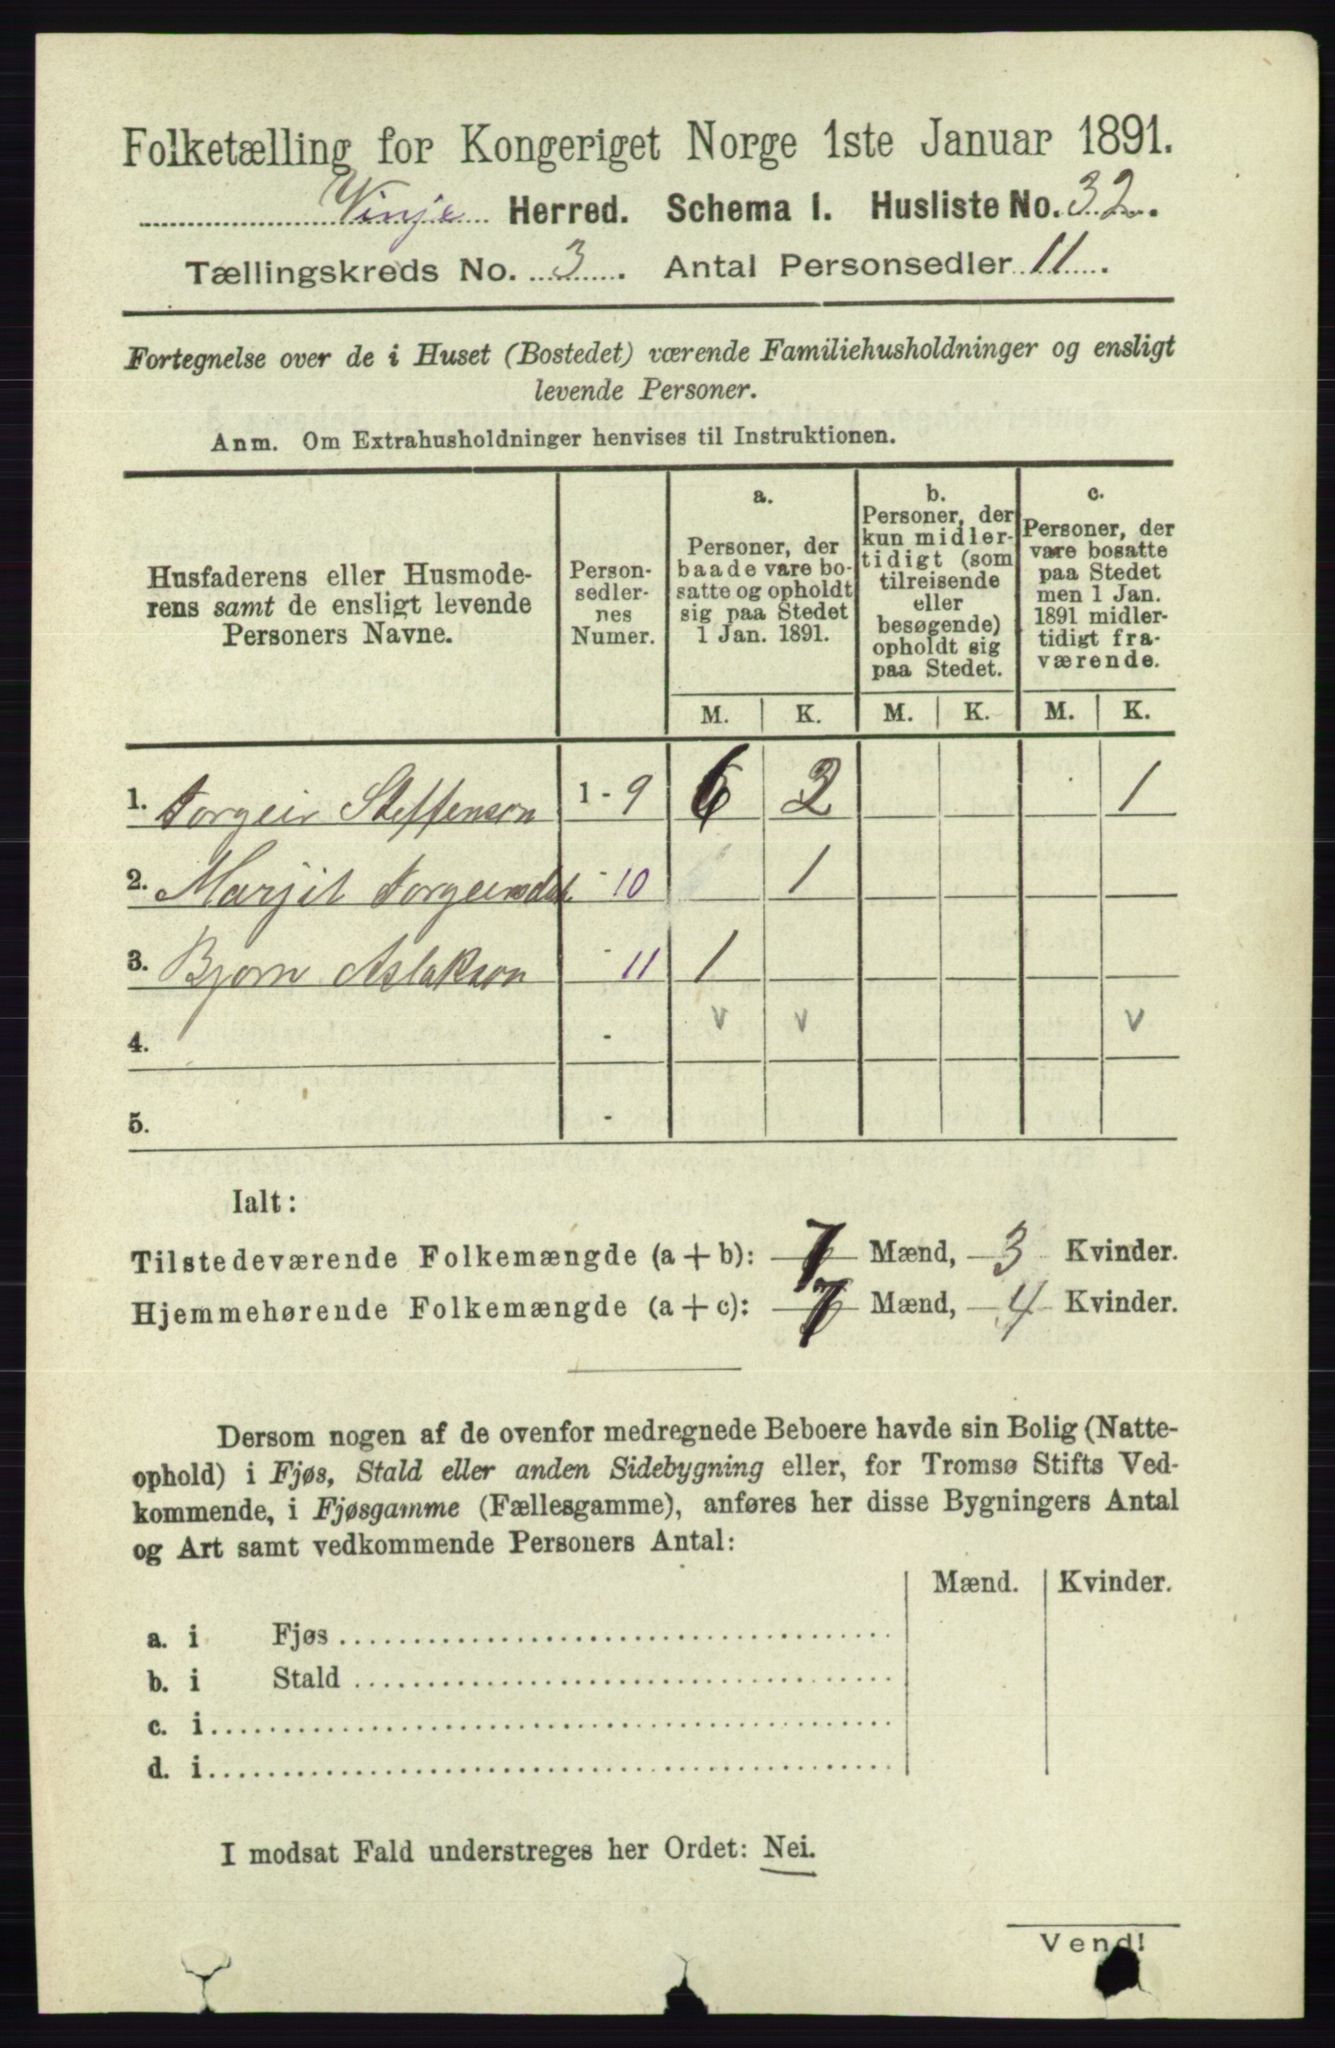 Folketælling for Kongeriget Norge 1ste Januar 1891.
Vinje Herred. Schema I. Husliste No. 32.
Tællingskreds No. 3. Antal Personsedler 11.
Fortegnelse over de i Huset (Bostedet) værende Familiehusholdninger og ensligt
levende Personer.
Anm. Om Extrahusholdninger henvises til Instruktionen.
Husfaderens eller Husmode-
rens samt de ensligt levende
Personers Navne.
Person-
sedler-
nes
Numer.
a.
Personer, der
baade vare bo-
satte og opholdt
sig paa Stedet
1 Jan. 1891.
b.
Personer, der
kun midler-
tidigt (som
tilreisende
eller
besøgende)
opholdt sig
paa Stedet.
c.
Personer, der
vare bosatte
paa Stedet
men 1 Jan.
1891 midler-
tidigt fra-
værende.
M. K. M. K. M. K.
1. Torgeir Steffenson 1 - 9 6 2 1
2. Marjit Torgeirsdat. - 10 1
3. Bjørn Aslakson - 11 1
v v v
4. -
5. -
Ialt:
Tilstedeværende Folkemængde (a + b): 7 Mænd, 3 Kvinder.
Hjemmehørende Folkemængde (a + c): 7 Mænd, 4 Kvinder.
Dersom nogen af de ovenfor medregnede Beboere havde sin Bolig (Natte-
ophold) i Fjøs, Stald eller anden Sidebygning eller, for Tromsø Stifts Ved-
kommende, i Fjøsgamme (Fællesgamme), anføres her disse Bygningers Antal
og Art samt vedkommende Personers Antal:
Mænd. Kvinder.
a. i Fjøs
b. i Stald
c. i
d. i
I modsat Fald understreges her Ordet: Nei.
Vend!